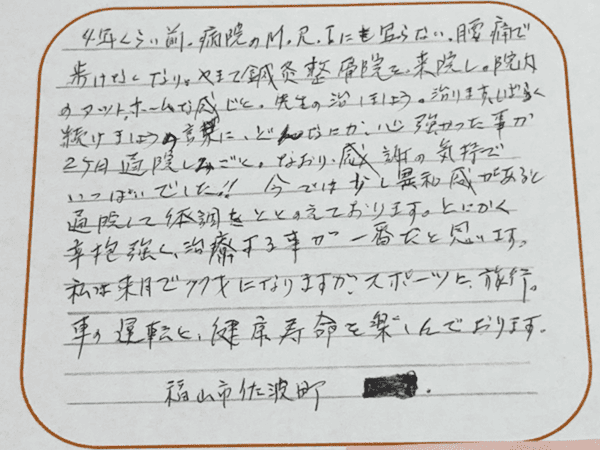 4年くらい前、病院のM.R.Iにも写らない、腰痛で
歩けなくなり、やまて鍼灸整骨院を来院し。院内
のアットホームな感じと、先生の治しましょう。治りますしばらく
続けましょうの言葉に、どんなにか、心強かった事か
2ヶ月通院しみごと。なおり、感謝の気持で
いっぱいでした!! 今では少し異和感があると
通院して体調をととのえております。とにかく
辛抱強く、治療する事が一番だと思います。
私は来月で77才になりますが、スポーツに、旅行。
車の運転と、健康寿命を楽しんでおります。
福山市佐波町